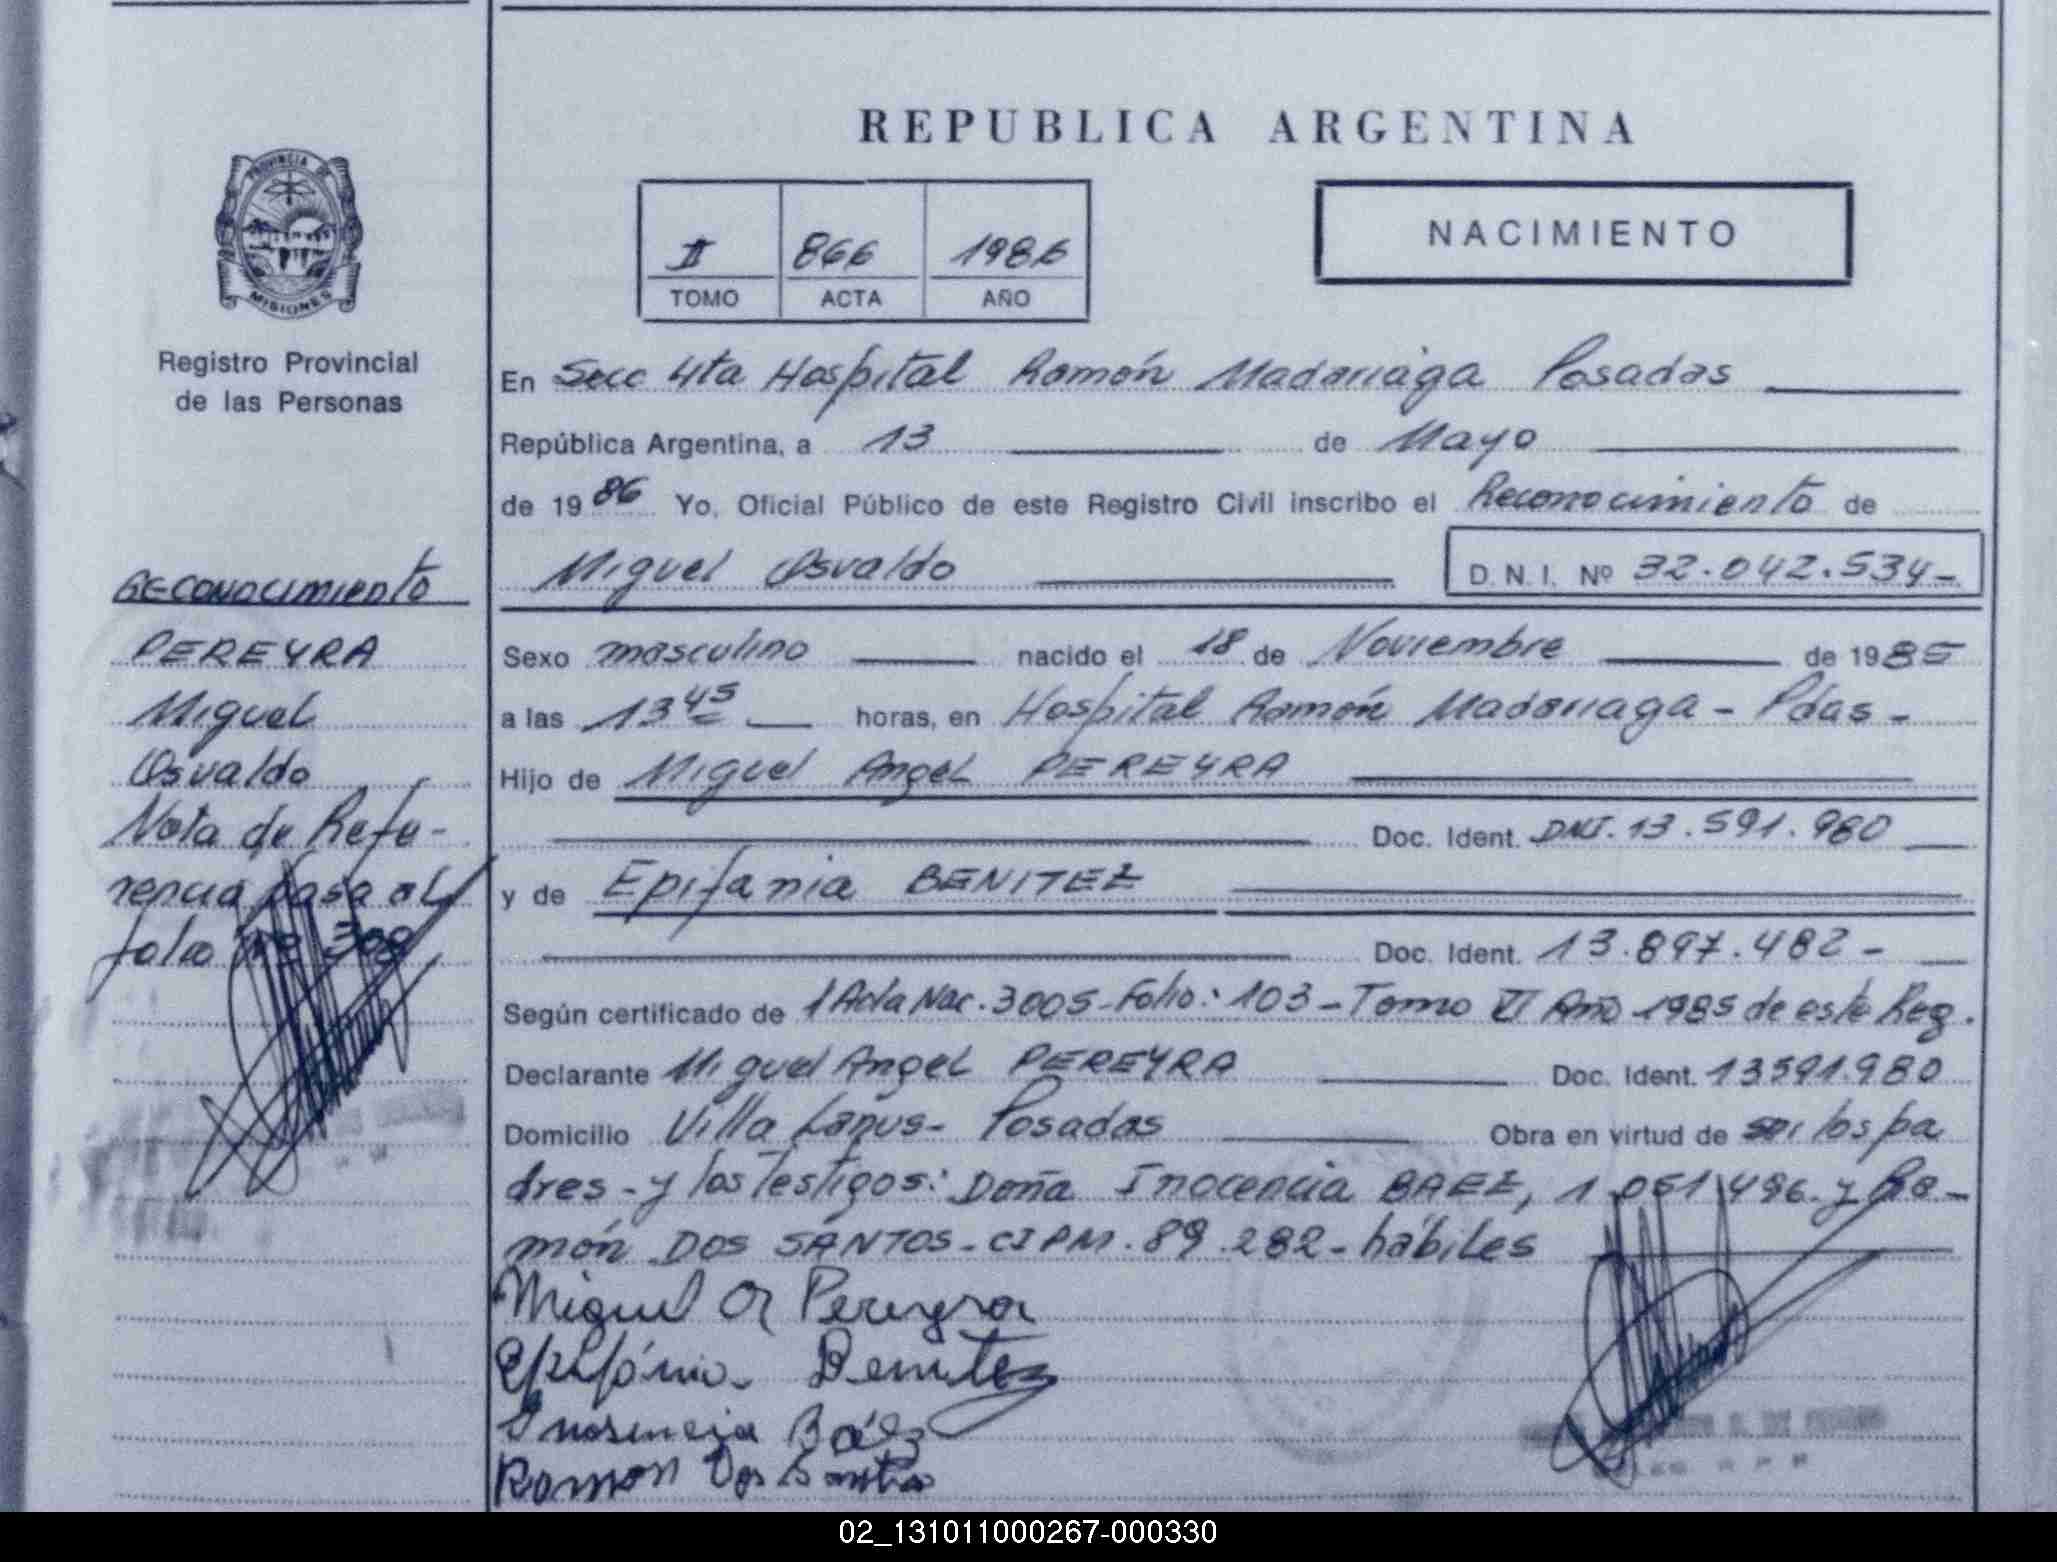 REPUBLICA ARGENTINA
PROVINCIA DE
MISIONES
Registro Provincial
de las Personas
II 866 1986
TOMO ACTA AÑO
NACIMIENTO
En Secc 4ta Hospital Ramón Madariaga Posadas
República Argentina, a 13 de Mayo
de 1986 Yo, Oficial Público de este Registro Civil inscribo el Reconocimiento de
Miguel Osvaldo D.N.I. Nº 32.042.534-
RECONOCIMIENTO
PEREYRA
Miguel
Osvaldo
Nota de Refe-
rencia pasa al
folio Nº 308
Sexo masculino nacido el 18 de Noviembre de 1985
a las 13 45 horas, en Hospital Ramón Madariaga - Pdas -
Hijo de Miguel Angel PEREYRA
Doc. Ident. DNI. 13.591.980
y de Epifania BENITEZ
Doc. Ident. 13.897.482 -
Según certificado de 1 Acta Nac. 3005 - Folio: 103 - Tomo VI Año 1985 de este Reg.
Declarante Miguel Angel PEREYRA Doc. Ident. 13591.980
Domicilio Villa Lanus - Posadas Obra en virtud de ser los pa
dres - y los testigos: Doña Inocencia BAEZ, 1.051.496. y Ra-
món DOS SANTOS - CIPM. 89.282 - hábiles
Miguel A Pereyra
Epifánia Benitez
Inosencia Báez
Ramon Dos Santos
02_131011000267-000330